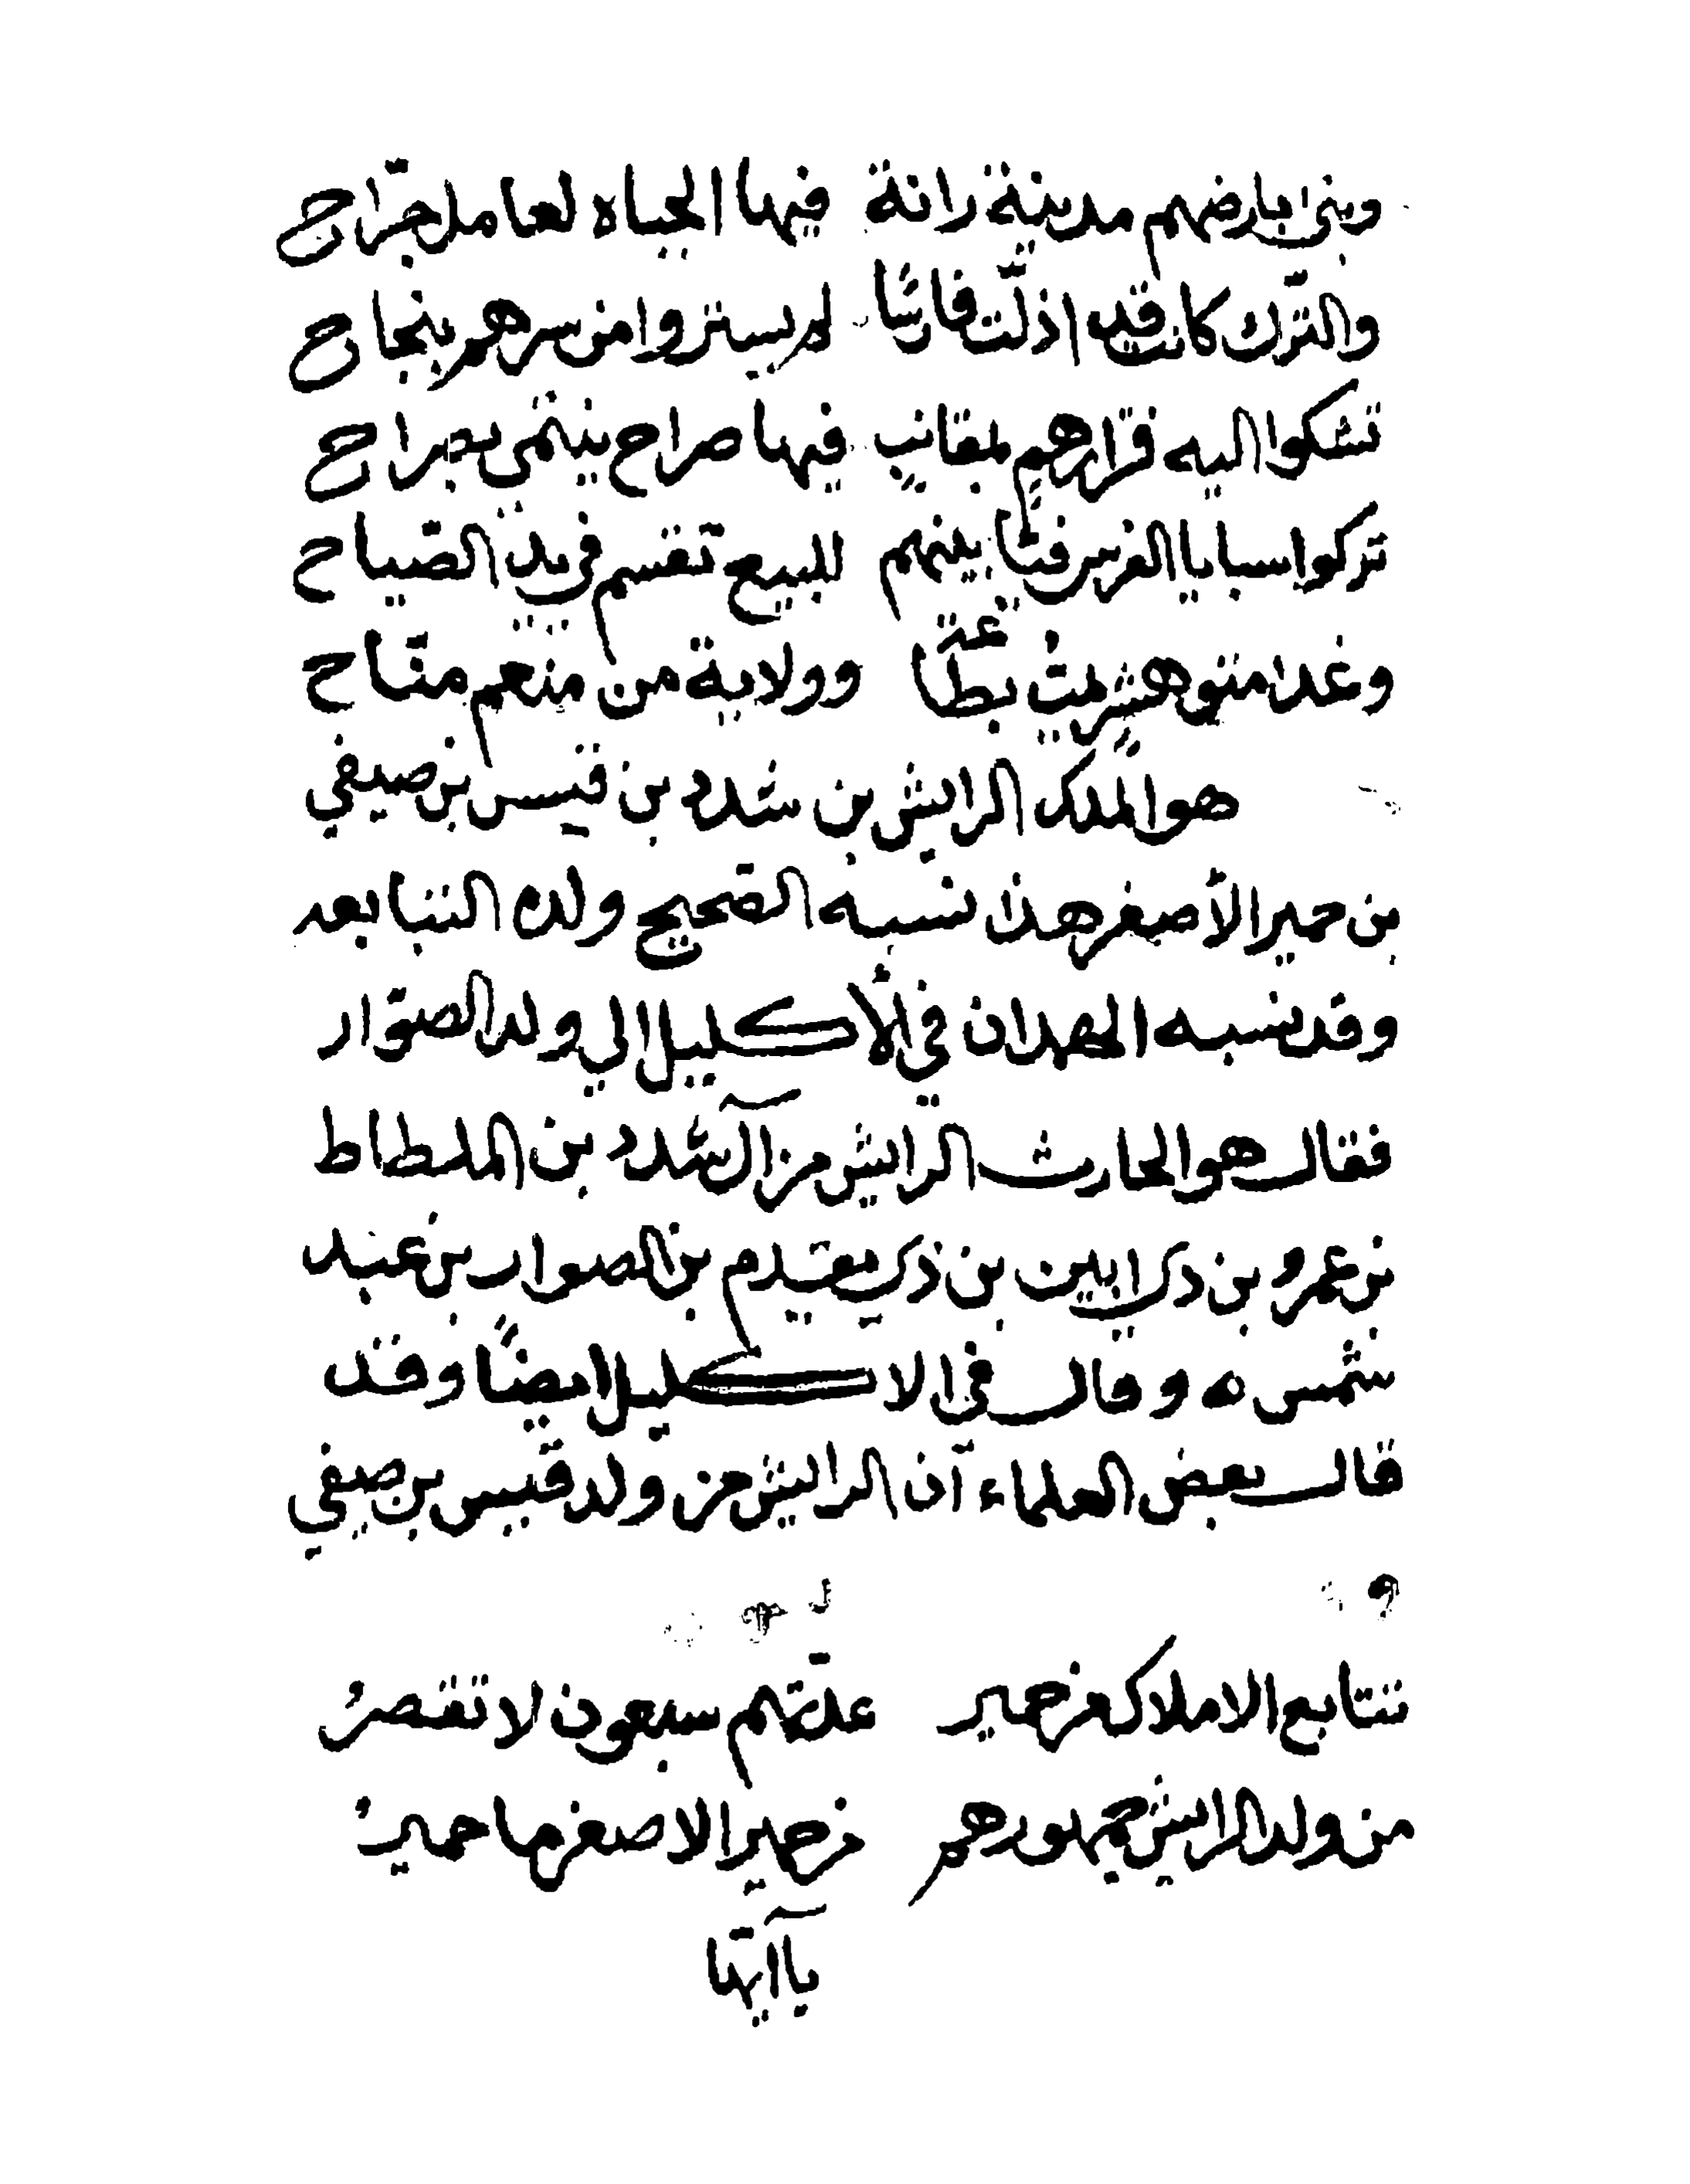 وبنى بارضهم مدينة رانة فيها الجباه لعامل جرّاح
والترّك كانت قد اذلّت فارسًا لم يستروا من سرهم بنجاح
تشكوا اليه قرارهم بمقانب فيها صراح ينتمى بصراح
تركوا سبايا الفرس فيئا بينهم للبيع تقسم في يدي الصّياح
وغدا منوهشر يمتّ بطاعة وولاية من منعم منّاح
هو الملك الرايش بن شدد بن قيس بن صيفي
بن حمير الأصغر هذا نسبه الصحيح ولده التبابعه
وقد نسبه الهمدان في الأكليل الي ولد الصوّار
فقال هو الحارث الرايش من آل شدد بن الملطاط
بن عمرو بن ذي ابين بن ذي يقدم بن الصوار بن عبد
شمس ه وقال في الاكليل ايضًا وقد
قال بعض العلماء آن الرايش من ولد قيس بن صيفي
تتتابع الاملاك من حمير عدّتهم سبعون لا تقصرُ
من ولد الرايش جمهورهم من حمير الاصغر ها حميرُ
يا آيتها